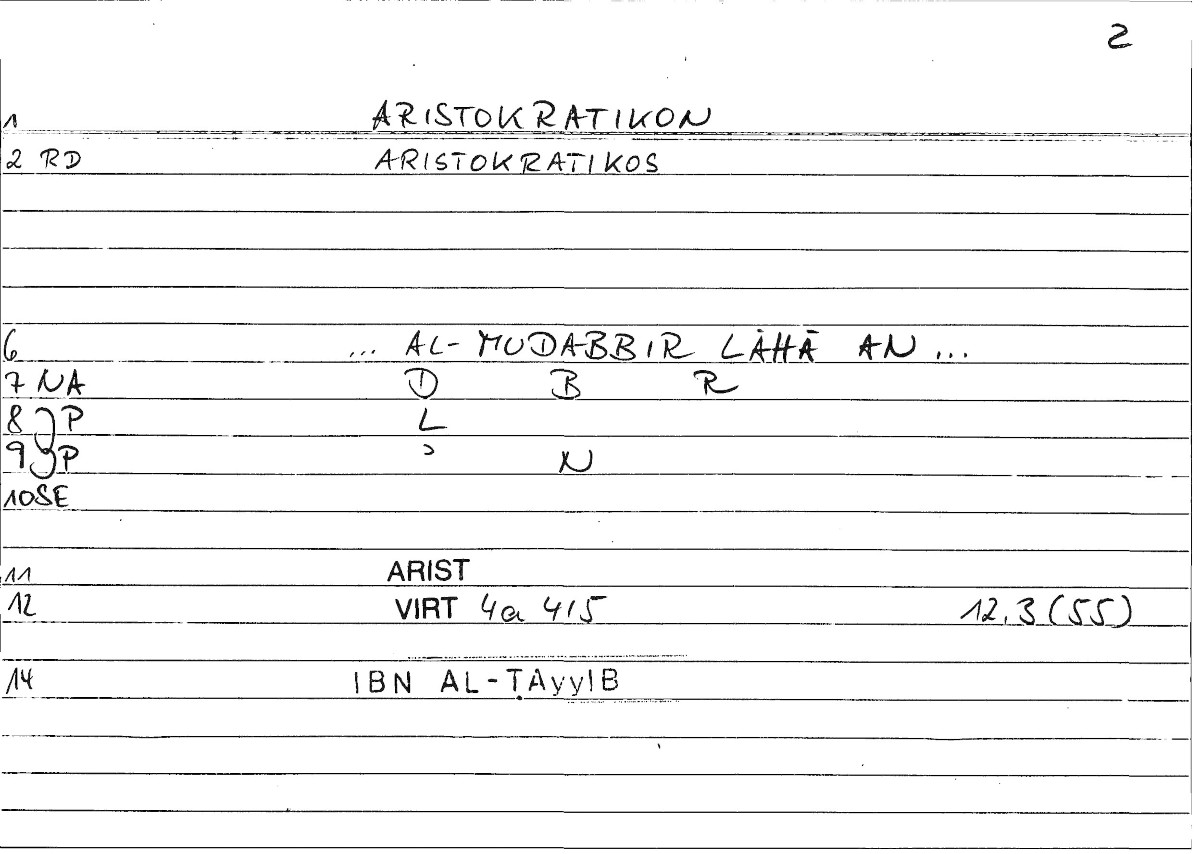 2
1 ARISTOKRATIKON
2 RD ARISTOKRATIKOS
6 ... AL-MUDABBIR LĀHĀ AN ...
7 NA D B R
8 JP L
9 JP ʾ N
10SE
11 ARIST
12 VIRT 4a 4/5 12.3 (55)
14 IBN AL-ṬAyyIB